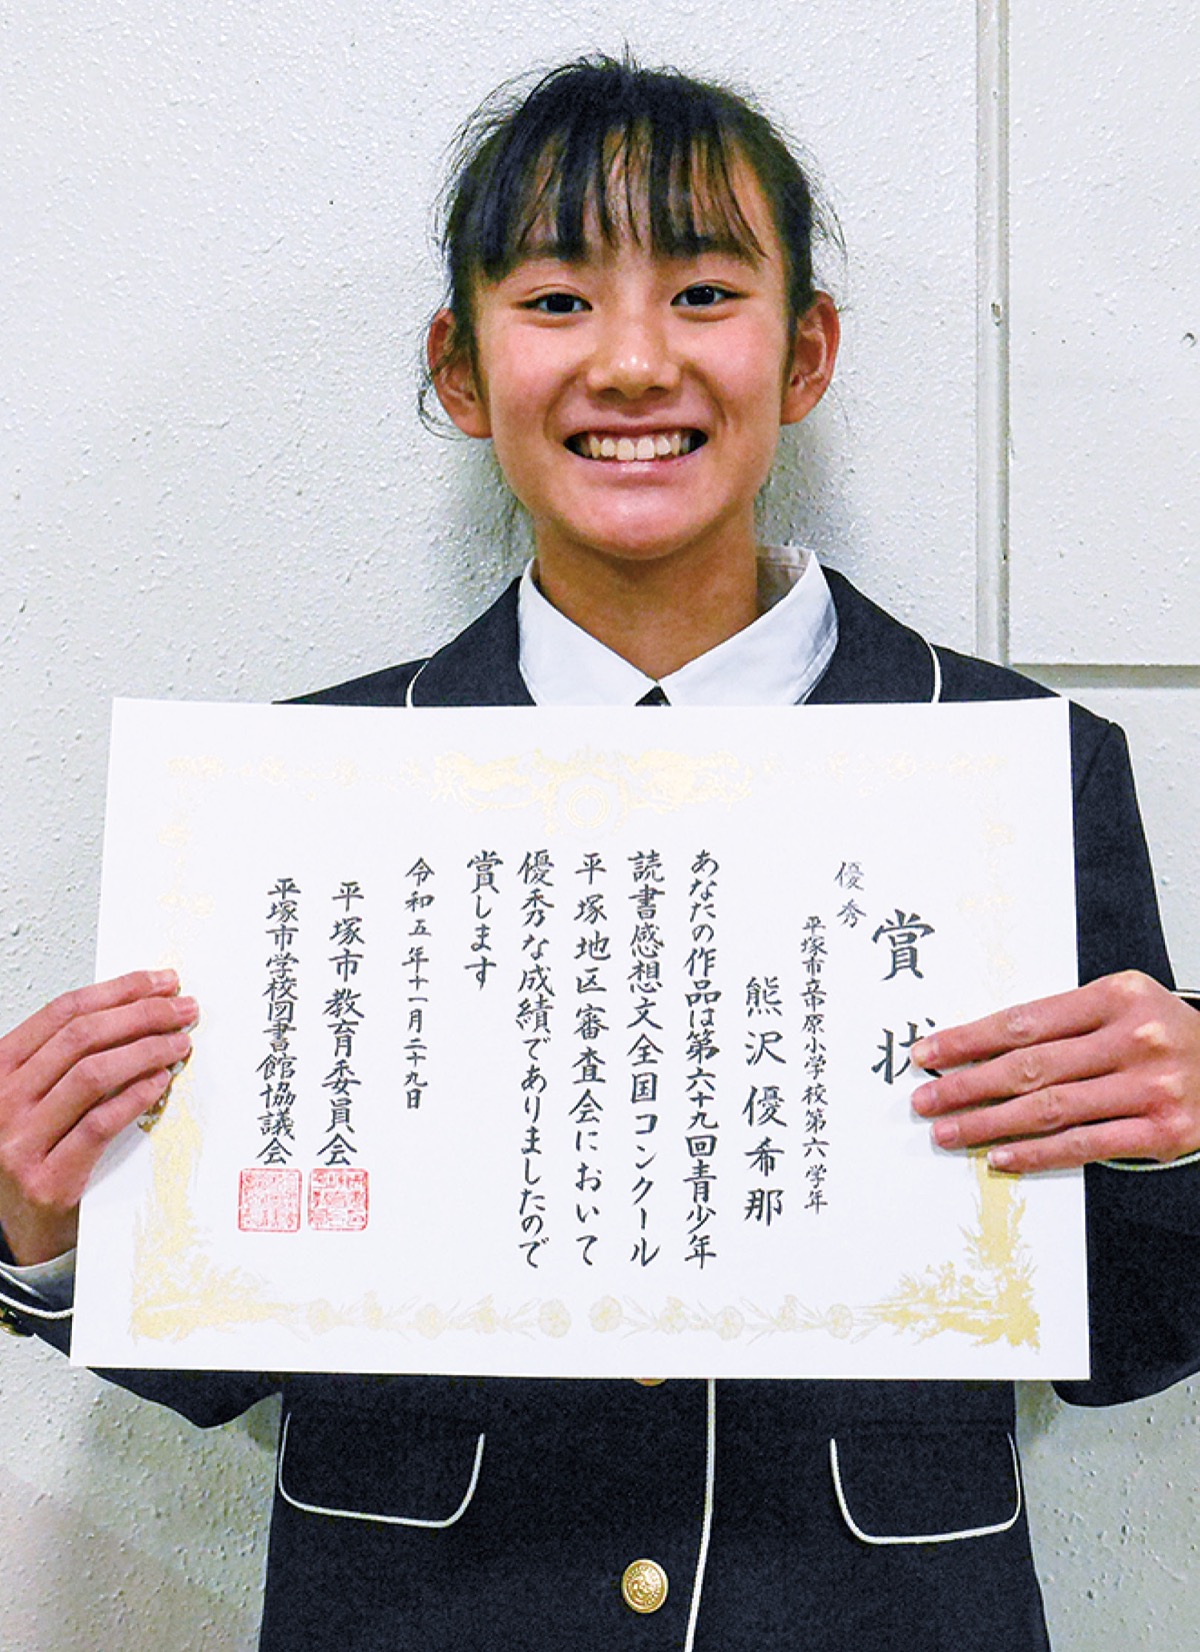 賞状
優秀
平塚市立中原小学校第六学年
熊沢優希那
あなたの作品は第六十九回青少年
読書感想文全国コンクール
平塚地区審査会において
優秀な成績でありましたので
賞します
令和五年十一月二十九日
平塚市教育委員会
平塚市学校図書館協議会